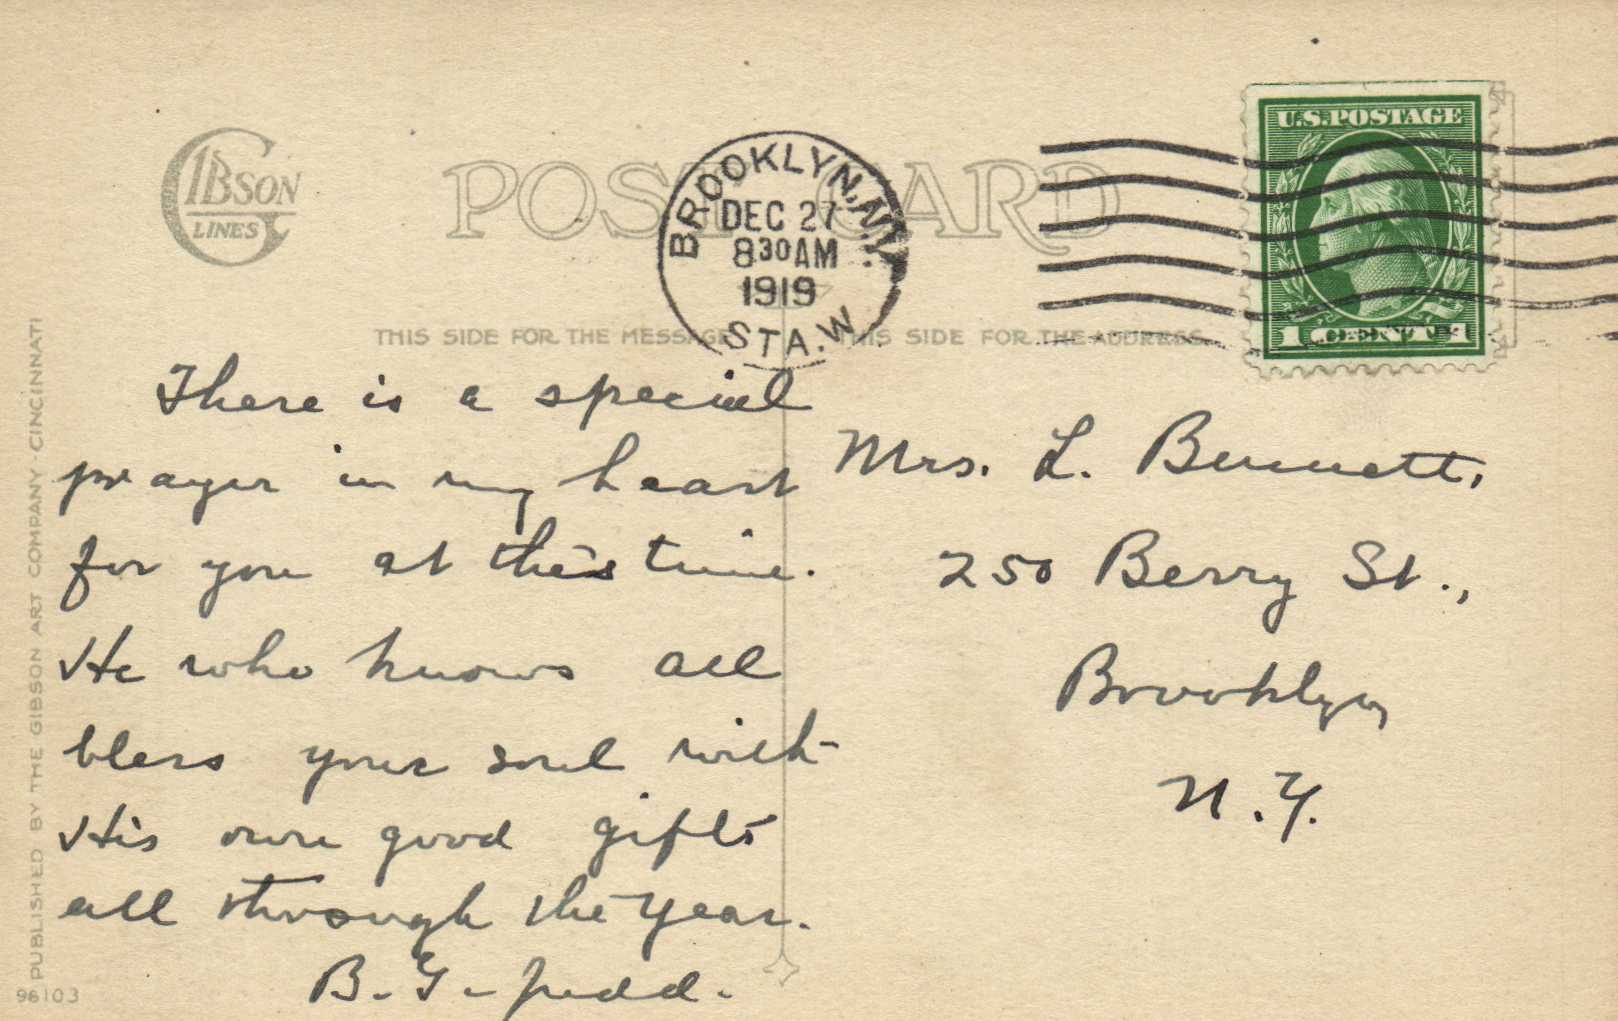 GIBSON
LINES
POST CARD
BROOKLYN, N.Y.
DEC 27
8 30 AM
1919
STA. W
U.S. POSTAGE
THIS SIDE FOR THE MESSAGE
THIS SIDE FOR THE ADDRESS
There is a special
prayer in my heart
for you at this time.
He who knows all
bless your soul with
His own good gifts
all through the year.
B. G. Judd.
Mrs. L. Bennett,
250 Berry St.,
Brooklyn
N.Y.
PUBLISHED BY THE GIBSON ART COMPANY - CINCINNATI
96103